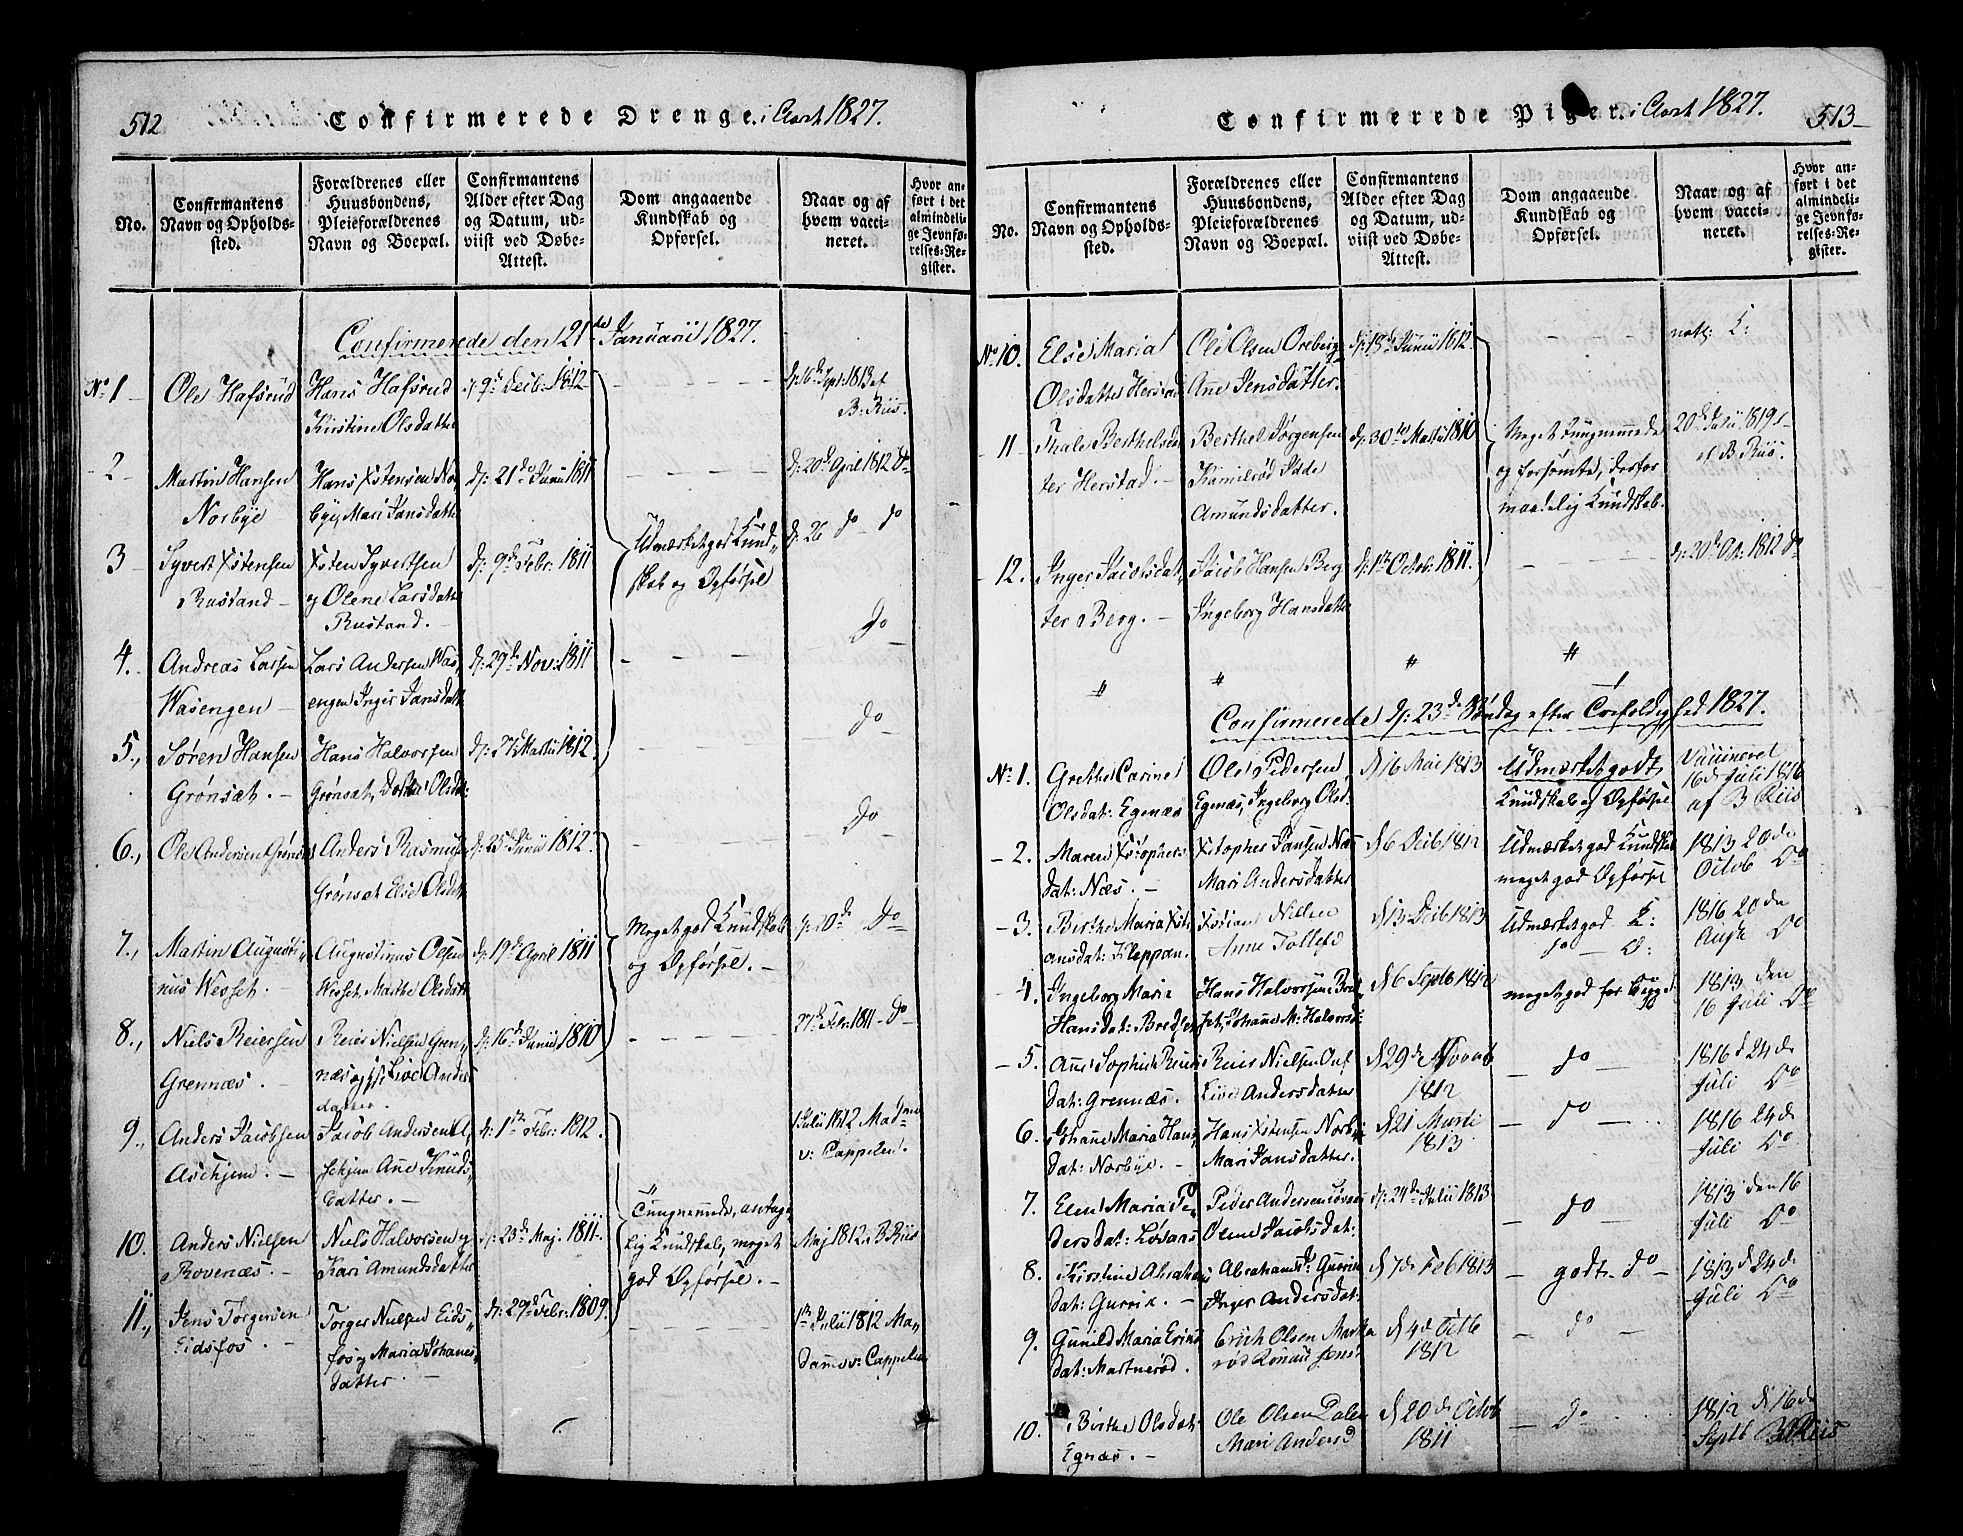 512
Confirmerede Drenge i Aaret 1827.
No.
Confirmantens
Navn og Opholds-
sted.
Forældrenes eller
Huusbondens,
Pleieforældrenes
Navn og Boepæl.
Confirmantens
Alder efter Dag
og Datum, ud-
viist ved Døbe-
Attest.
Dom angaaende
Kundskab og
Opførsel.
Naar og af
hvem vacci-
neret.
Hvor an-
ført i det
almindeli-
ge Jevnfø-
relses-Re-
gister.
Confirmerede den 21de Januarii 1827.
No 1
Ole Hafsrud
Hans Hafsrud
Kirstine Olsdatter
d: 9d Decbr: 1812
d: 16d Spt: 1813 af
B: Riis.
2
Martin Hansen
Norbye
Hans Xstensen Nor
bye, Mari Jansdatter
d: 21de Junii 1811
d: 20d April 1812 do
3
Syvert Xstensen
Rustand
Xsten Syvertsen
og Olene Larsdatter
Rustand.
d: 9de Febr: 1811
Udmærket god Kund
skab og Opførsel
d: 26 do do
4.
Andreas Larsen
Wasengen
Lars Andersen Was
engen Inger Jansdatt
d: 29de Nov: 1811
do
5.,
Søren Hansen
Grønsæt.
Hans Halvorsen
Grønsæt, Olsd
d: 27d Martii 1812.
do
6.,
Ole Andersen Grøns
Anders Rasmus
Grønsæt Else Olsdat
d: 25d Junii 1812.
do
7.,
Martin Augusti
nus Wesset.
Augustinus Olsen
Wesset, Marthe Olsdatt
d: 19d April 1811
Meget god Kundskab
og Opførsel.
d: 20de do
8.,
Niels Reiersen
Grennæs.
Reier Nielsen Gren
næs og Live Anders
datter.
d: 16d Junii 1810
27d Febr: 1811 do
9.,
Anders Jacobsen
Aschjem.
Jacob Andersen A
schjem Ane Knuds
datter.
d: 1te Febr: 1812.
1 Julii 1812 Madme
v: Cappelen.
10.
Anders Nielsen
Rovenæs.
Niels Halvorsen og
Kari Amundsdatter
d: 23d Maj. 1811.
Tungnemmede, antage
lig Kundskab, meget
god Opførsel.
Maj 1812. B Riis
11.,
Jens Torgersen
Eidsfos.
Torger Nielsen Eids
fos og Maria Johanes
datter.
d: 29d Febr: 1809.
1te Julii 1812 Ma
dame v: Cappelen
513
Confirmerede Piger i Aaret 1827.
No.
Confirmantens
Navn og Opholds-
sted.
Forældrenes eller
Huusbondens,
Pleieforældrenes
Navn og Boepæl.
Confirmantens
Alder efter Dag
og Datum, ud-
viist ved Døbe-
Attest.
Dom angaaende
Kundskab og
Opførsel.
Naar og af
hvem vacci-
neret.
Hvor an-
ført i det
almindeli-
ge Jevnfø-
relses-Re-
gister.
No 10.
Else Maria
Olsdatter Herstad
Ole Olsen Oreberg
Ane Jensdatter.
d: 18d Junii 1812.
11
Thale Berthelsdat
ter Herstad.
Berthel Jørgensen
Kamilrød
Amundsdatter.
d: 30te Martii 1810
Meget Tungnemmede
og forsømte, derfor
maadelig Kundskab.
20d Julii 1819
af B Riis.
12.
Inger Jacobsdat
ter Berg.
Jacob Hansen Berg
Ingeborg Hansdatter
d: 1te Octob: 1811.
d: 20d Oct: 1812 do
Confirmerede d: 23de Søndag efter Trefoldighed 1827.
No 1.
Grethe Carine
Olsdat: Egenæs
Ole Pedersen
Egenæs, Ingeborg Olsd
d 16 Mai 1813
Udmærket godt
Kundskab og Opførsel
Vaccineret
16d Juli 1816
af B Riis
2.
Maren Xstophers
dat: Næs.
Xstopher Jansen Næs
Mari Andersdatter
d 6 Decb 1812
Udmærket god Kundskab
meget god Opførsel
1813 20 de
Octob Do
3.
Berthe Maria Xsti
ansdat: Kleppan.
Xstian Nielsen
Anne Tollefsd
d 13 Decb 1813
Udmærket god K:
do O:
1816 20 de
Augt Do
4.
Ingeborg Marie
Hansdat: Bredset
Hans Halvorsen Bred
set, Johane M: Halvorsd:
d 6 Septb 1812
meget god for begge
1813 den
16 Juli Do
5.
Ane Sophie Reiers
dat: Grennæs.
Reier Nielsen
Live Andersdatter
d 29 de Novemb
1812
do
1816 d 24 de
Juli Do
6.
Johane Maria Hans
dat: Norbye.
Hans Xstensen Norbye
Mari Jansdatter.
d 21 Marti
1813
do
1816 24 de
Juli Do
7.
Elen Maria Pe
dersdat: Løvaas
Peder Andersen Løvaas
Olene Jacobsdat:
d: 24de Julii 1813
do
1813 den 16
Juli Do
8.
Kirstine Abraha
dat: Gurrik.
Abraham Gurrik
Inger Andersdat:
d 7 de Feb 1813
godt do
1813 d 24 de
Juli Do
9.
Gunild Maria Erics
dat: Martnerød.
Erich Olsen Martne
rød Jensd
d 4 de Octb
1812
do
10.
Birthe Olsdat:
Egnæs.
Ole Olsen Dalen
Mari Andersd
d 20 de Octob
1811
do
1812 d 16 de
Septb B Riis